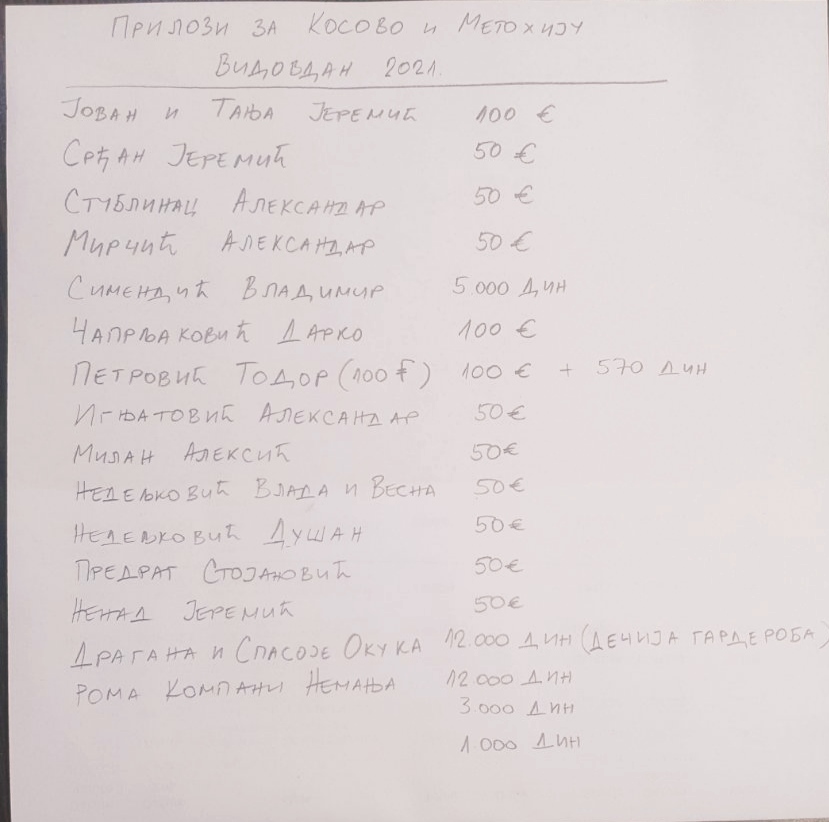 Прилози за Косово и Метохију
Видовдан 2021.
Јован и Тања Јеремић 100 €
Срђан Јеремић 50 €
Стублинац Александар 50 €
Мирчић Александар 50 €
Симендић Владимир 5.000 дин
Чапрљаковић Дарко 100 €
Петровић Тодор (100 ₣) 100 € + 570 дин
Игњатовић Александар 50 €
Милан Алексић 50 €
Недељковић Влада и Весна 50 €
Недељковић Душан 50 €
Предраг Стојановић 50 €
Ненад Јеремић 50 €
Драгана и Спасоје Окука 12.000 дин (дечија гардероба)
Рома Компани Немања 12.000 дин
3.000 дин
1.000 дин